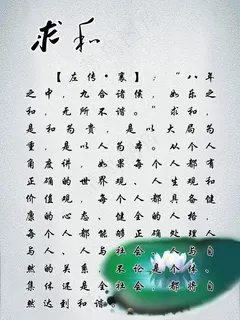 求和
【左传·襄】：“八年
之中，九合诸侯，如乐之
和，无所不谐。”求和，
是和为贵，是以大局为
重，是以人为本。从个人
角度讲，如果每个人都有
正确的世界观、人生观和
价值观，每个人都具备健
康的心态、健全的人格，
每个人都能够正确处理人
与人、人与社会、人与自
然的关系，不论是个体、
集体还是全社会，都将自
然达到和谐。